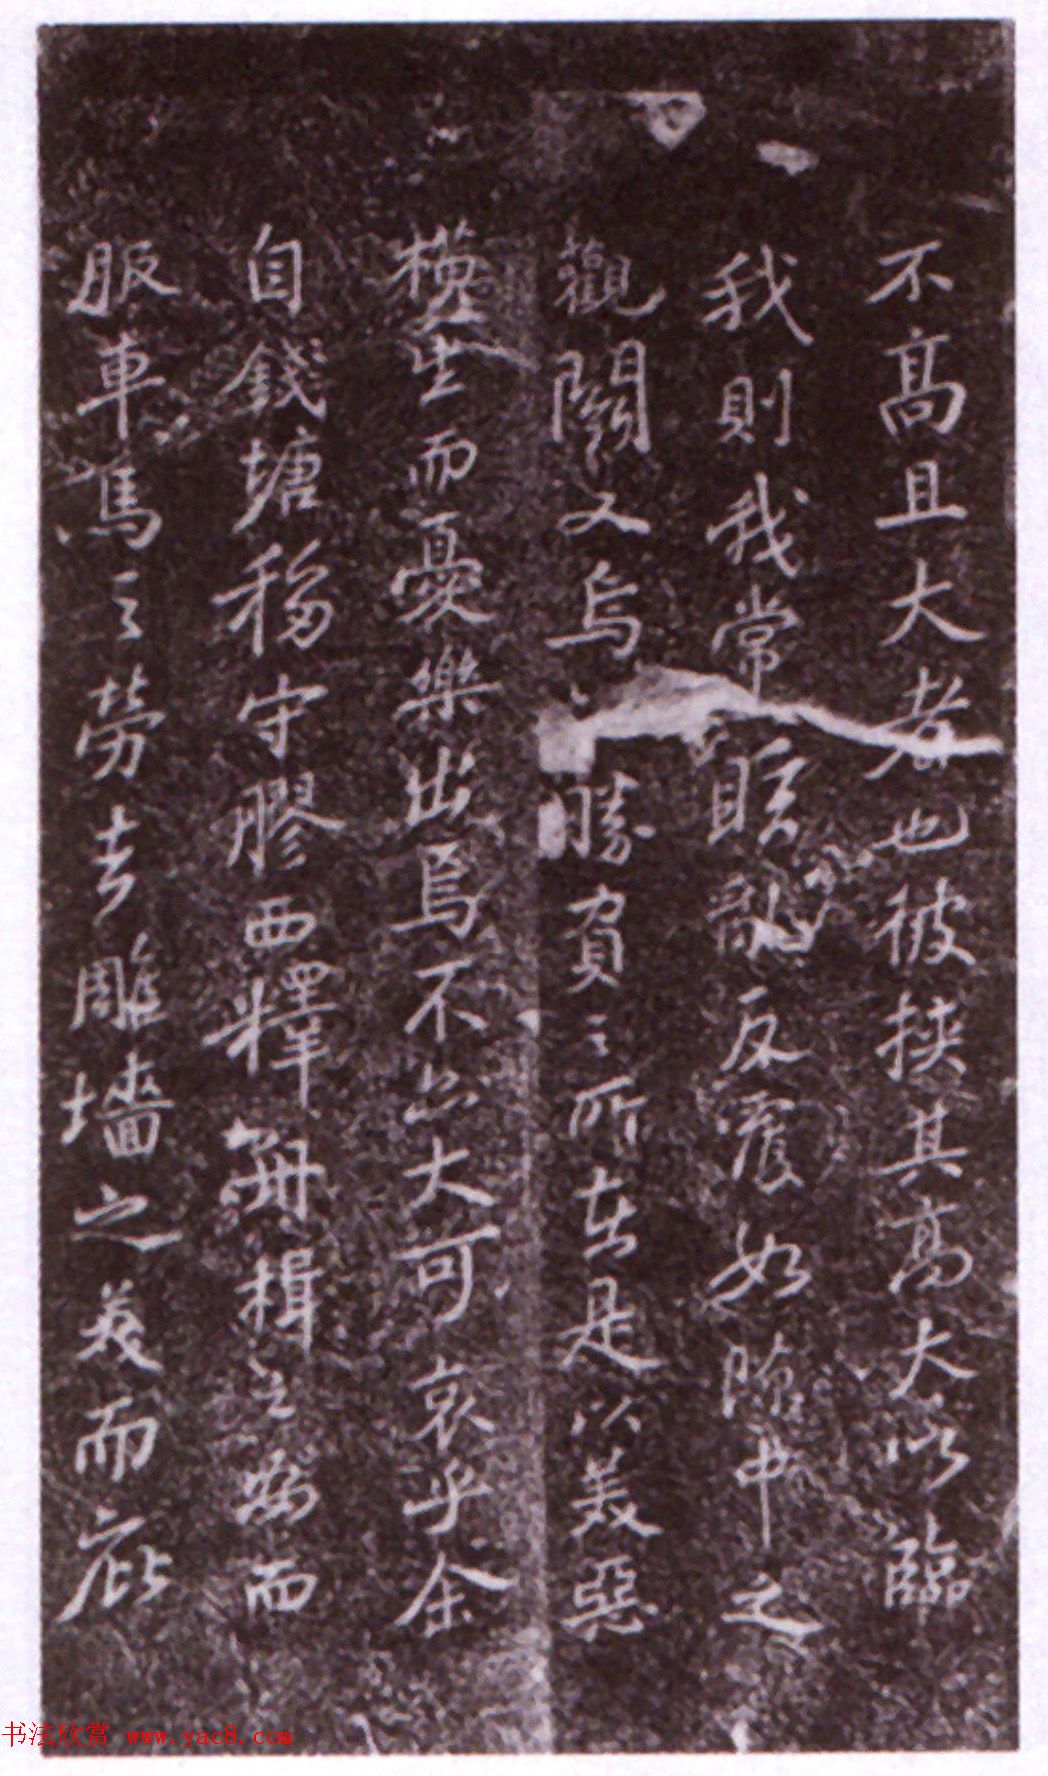 不高且大者也彼挾其高大以臨
我則我常眩亂反覆如隙中之
觀鬭又烏勝負之所在是以美惡
橫生而憂樂出焉不亦大可哀乎余
自錢塘移守膠西釋舟楫之安而
服車馬之勞去雕墻之美而庇
书法欣赏 www.yac8.com